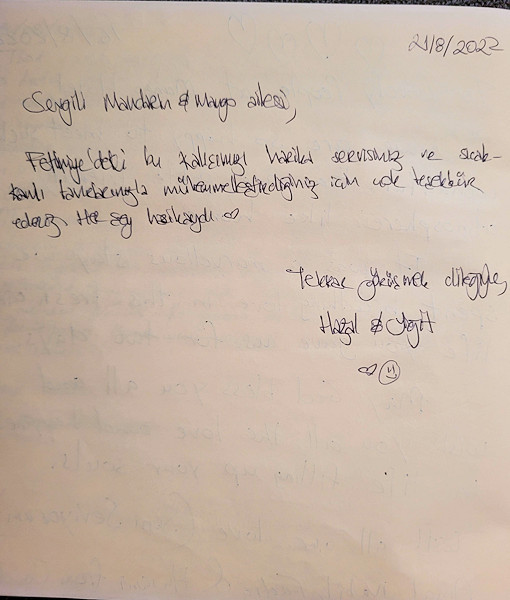 21/8/2022
Sevgili Mandren & Mango ailesi,
Fethiye'deki bu kalışımızı harika servisiniz ve sıcak-
kanlı tavrlarınızla mükemmelleştirdiğiniz için çok teşekkür
ederiz. Her şey harikaydı ♡
Tekrar görüşmek dileğiyle,
Hazal & Yiğit
♡☺